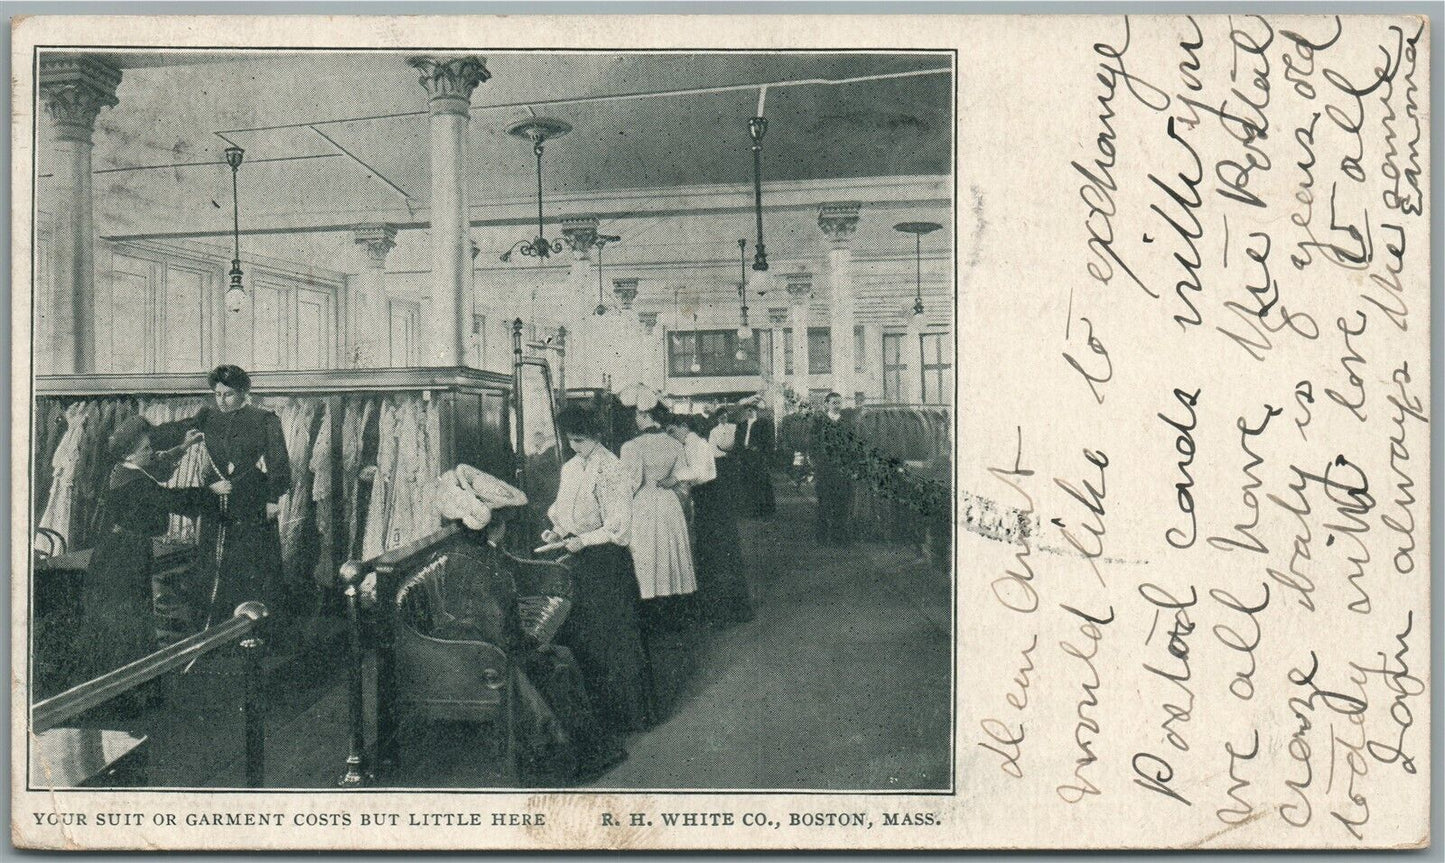 YOUR SUIT OR GARMENT COSTS BUT LITTLE HERE
R. H. WHITE CO., BOSTON, MASS.
dear Aunt
would like to exchange
Postal cards with you
we all have the Postal
craze baby is 8 years old
today with love to all
always the same
Emma